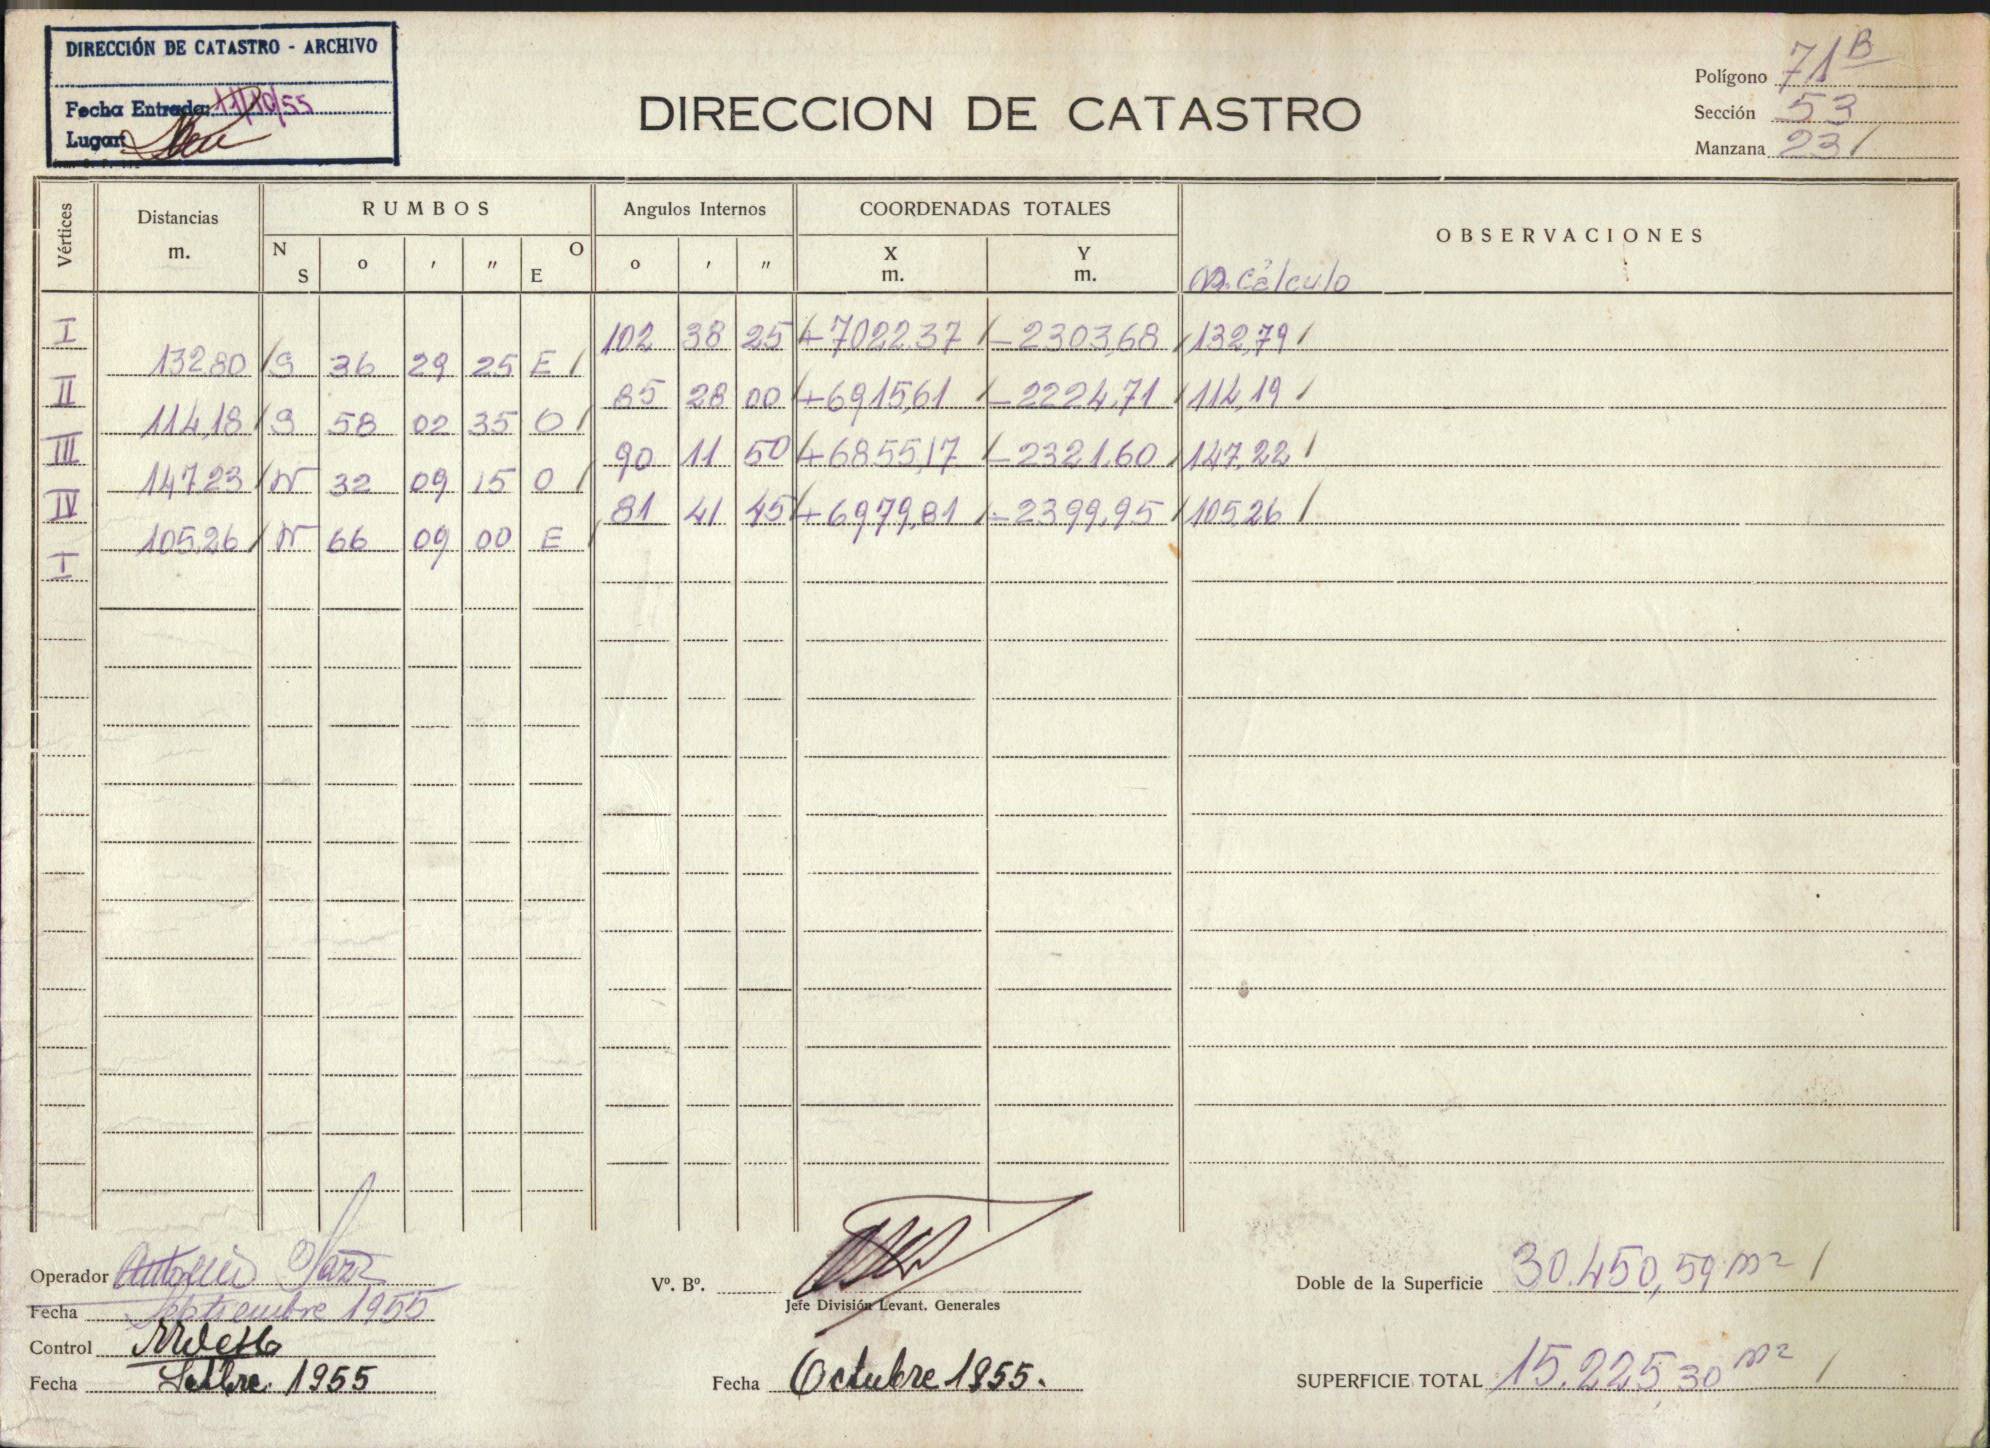 DIRECCIÓN DE CATASTRO - ARCHIVO
Fecha Entrada: 11/10/55
Lugar
DIRECCION DE CATASTRO
Polígono 71B
Sección 53
Manzana 231
Vértices
Distancias m.
RUMBOS
Angulos Internos
COORDENADAS TOTALES
OBSERVACIONES
N S o ' " O E
o ' "
X m.
Y m.
Cálculo
I 102 38 25 +7022,37 -2303,68 132,79
132,80 S 36 29 25 E
II 85 28 00 +6915,61 -2224,71 114,19
114,18 S 58 02 35 O
III 90 11 50 +6855,17 -2321,60 147,22
147,23 N 32 09 15 O
IV 81 41 45 +6979,81 -2399,95 105,26
105,26 N 66 09 00 E
I
Operador Antonio
Fecha Septiembre 1955
Control
Fecha Setbre. 1955
Vº. Bº.
Jefe División Levant. Generales
Fecha Octubre 1955.
Doble de la Superficie 30.450,59 m2
SUPERFICIE TOTAL 15.225,30 m2